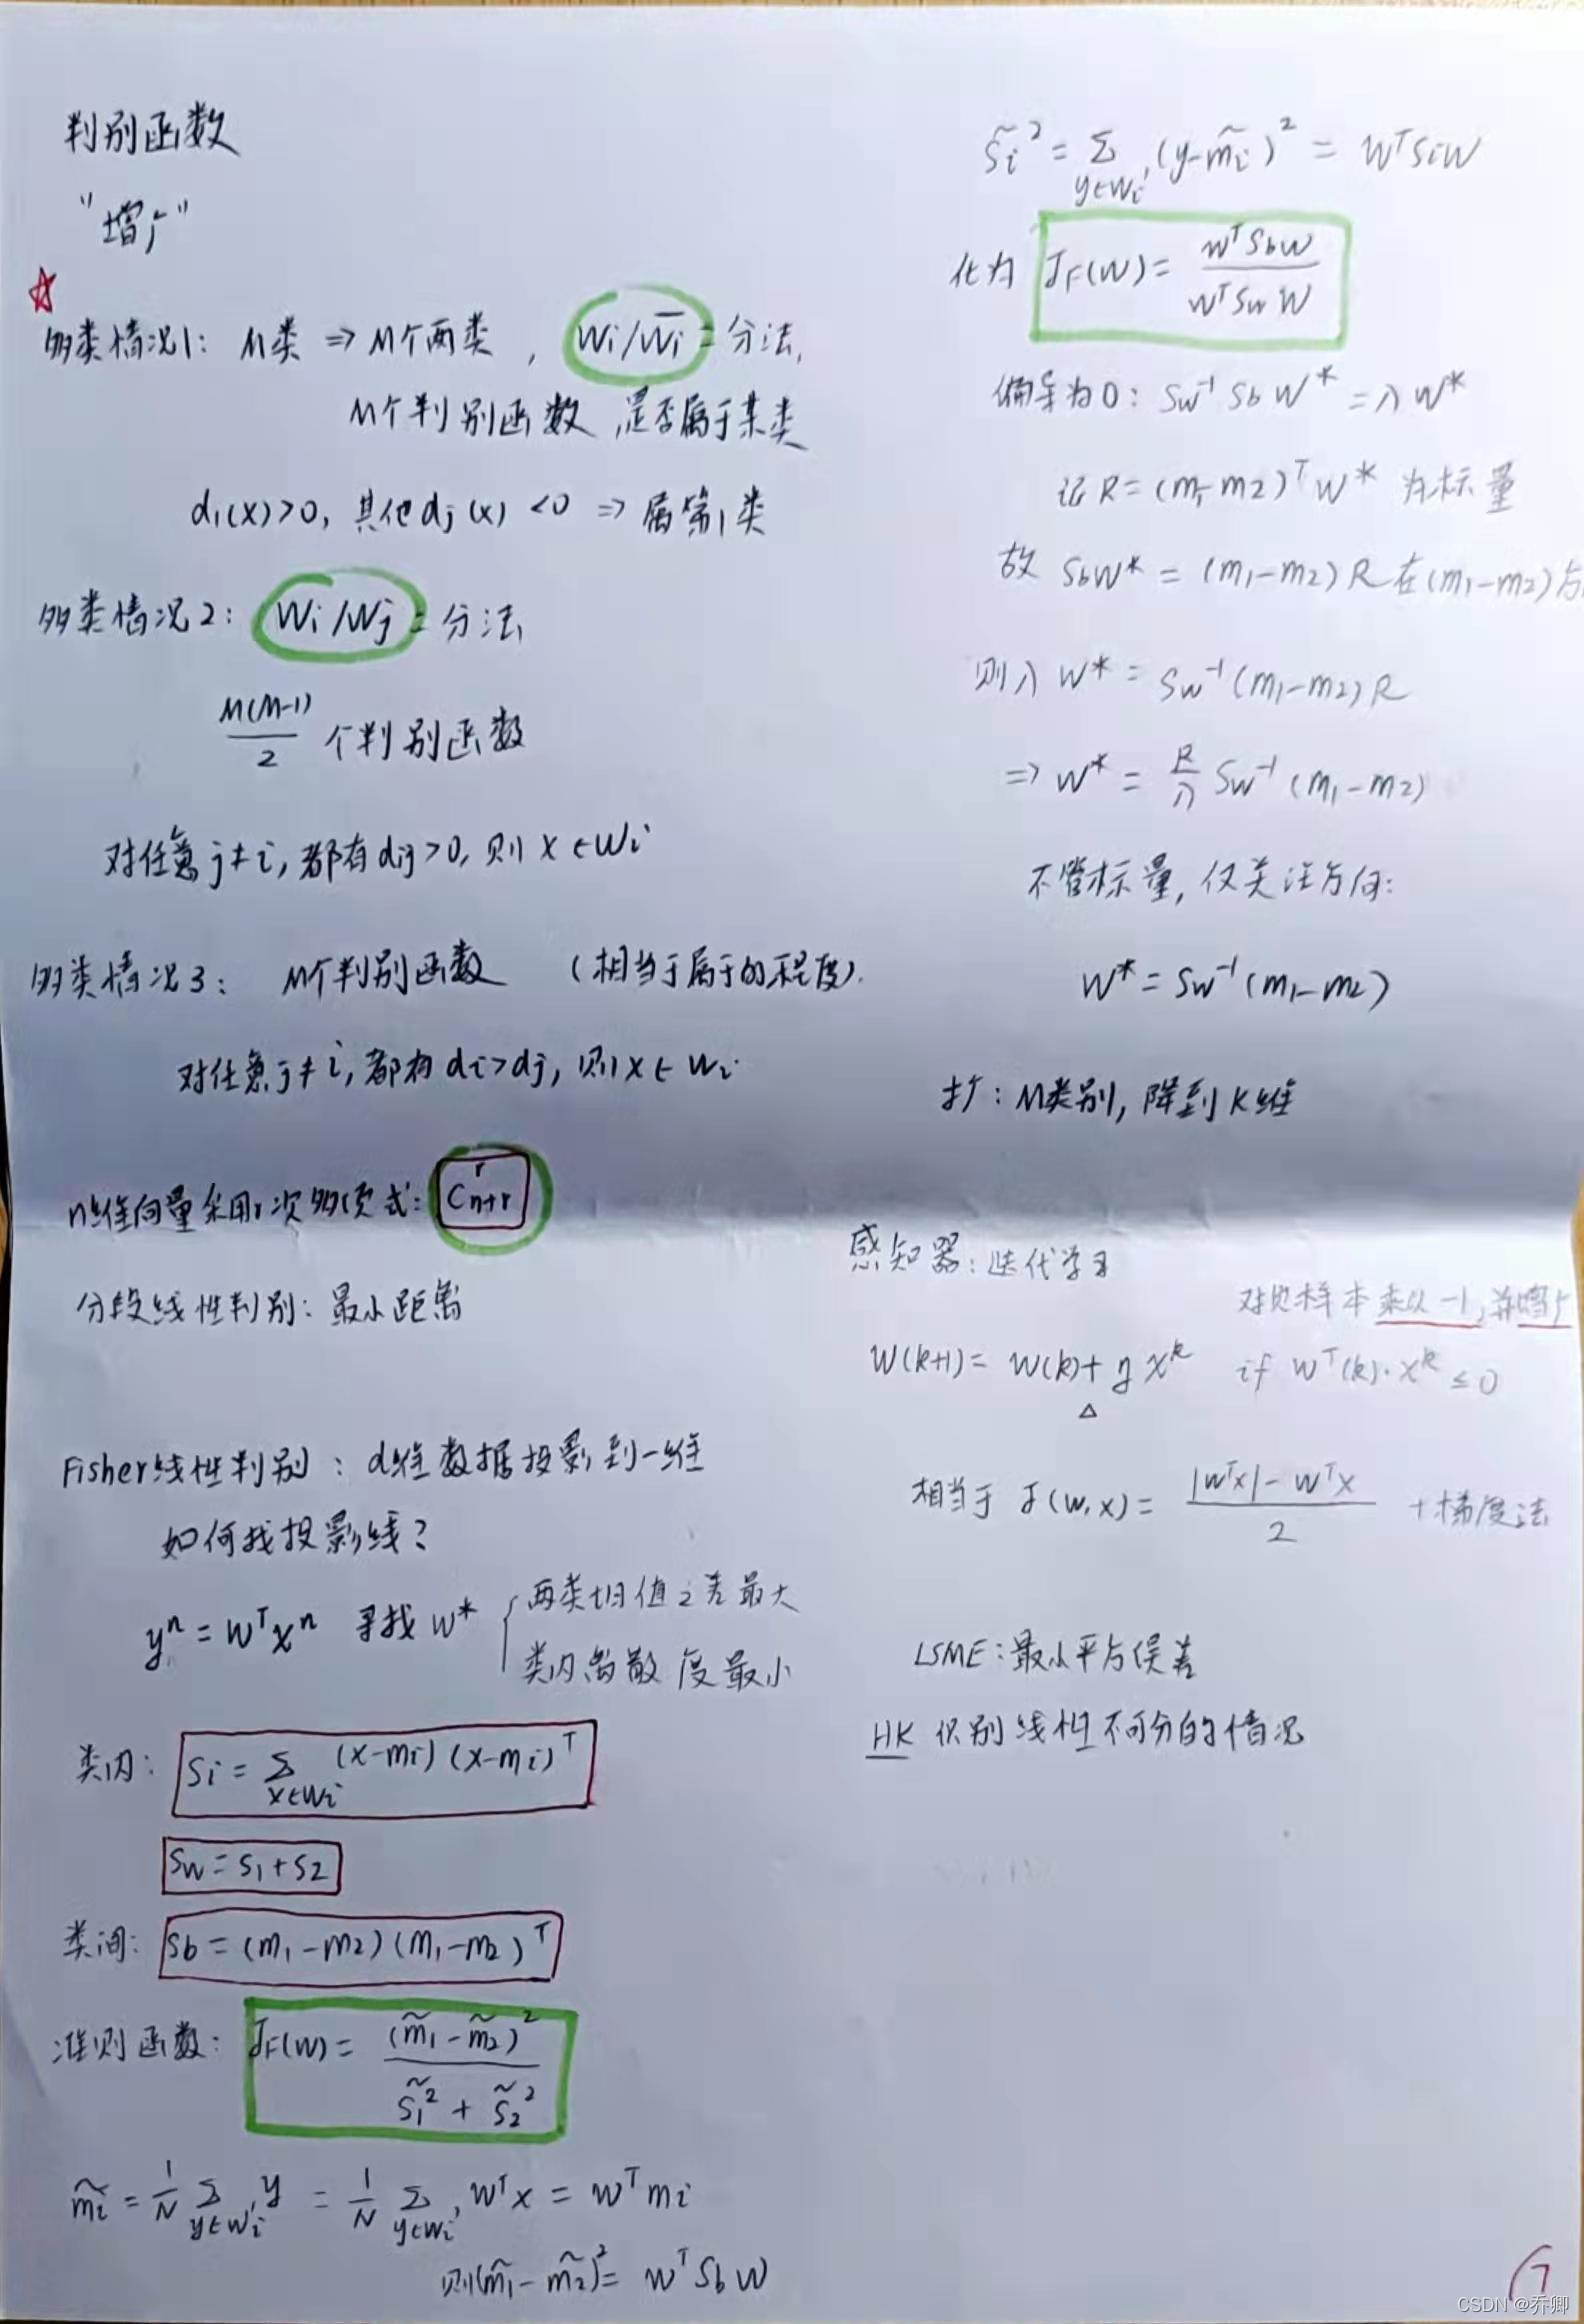 判别函数
"增广"
☆
多类情况1: M类 ⇒ M个两类, Wi/W̄i 二分法,
M个判别函数,是否属于某类
d₁(x)>0, 其他dj(x)<0 ⇒ 属第1类
多类情况2: Wi/Wj 二分法
M(M-1)/2 个判别函数
对任意j≠i, 都有dij>0, 则x∈Wi
多类情况3: M个判别函数 (相当于属于的程度).
对任意j≠i, 都有di>dj, 则x∈Wi
n维向量采用r次多项式: C_{n+r}^r
分段线性判别: 最小距离
Fisher线性判别: d维数据投影到一维
如何找投影线?
yⁿ = Wᵀxⁿ 寻找W* { 两类均值之差最大
类内离散度最小
类内: Si = Σ_{x∈Wi} (x-mi)(x-mi)ᵀ
Sw = S1+S2
类间: Sb = (m1-m2)(m1-m2)ᵀ
准则函数: J_F(W) = (m̃1-m̃2)² / (S̃1² + S̃2²)
m̃i = 1/N Σ_{y∈Wi'} y = 1/N Σ_{y∈Wi'} Wᵀx = Wᵀmi
则(m̃1-m̃2)² = WᵀSbW
S̃i² = Σ_{y∈Wi'} (y-m̃i)² = WᵀSiW
化为 J_F(W) = WᵀSbW / WᵀSwW
偏导为0: Sw⁻¹SbW* = λW*
记R = (m1-m2)ᵀW* 为标量
故 SbW* = (m1-m2)R 在(m1-m2)方
则λW* = Sw⁻¹(m1-m2)R
⇒ W* = R/λ Sw⁻¹(m1-m2)
不管标量, 仅关注方向:
W* = Sw⁻¹(m1-m2)
扩: M类别, 降到K维
感知器: 迭代学习
对负样本乘以-1, 并增广
W(k+1) = W(k)+ηxᵏ if Wᵀ(k)·xᵏ ≤ 0
△
相当于 J(W,x) = (|Wᵀx| - Wᵀx) / 2 +梯度法
LSME: 最小平方误差
HK 识别线性不可分的情况
7
CSDN @乔卿